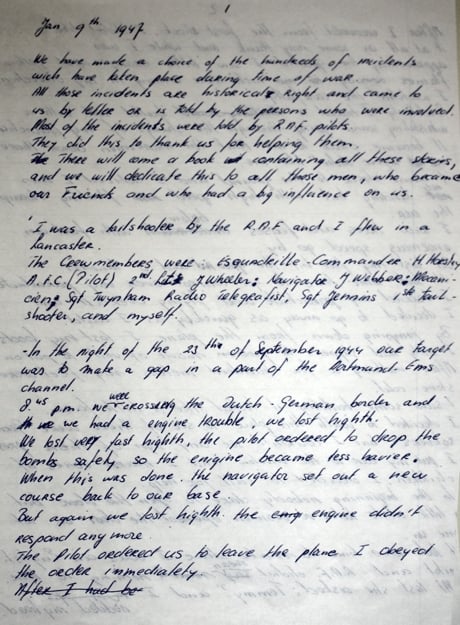 1
Jan 9th 1947
We have made a choice of the hundreds of incidents
wich have taken place during time of war.
All those incidents are historicals right and came to
us by letter or is told by the persons who were involved.
Most of the incidents were told by R.A.F. pilots.
They did this to thank us for helping them.
The There will come a book containing all these stories,
and we will dedicate this to all those men, who became
our Friends and who had a big influence on us.
' I was a tailshooter by the R.A.F. and I flew in a
lancaster.
The Crewmembers were: Esquadrille-Commander H. Horsley
A.F.C. (Pilot) 2nd J Wheeler; Navigator J Webber; Mecani-
ciens; Sgt Twynham Radio Telegrafist, Sgt Jennins 1ste Tail-
shooter, and myself.
- In the night of the 23the of September 1944 our target
was to make a gap in a part of the Dortmund-Ems
channel.
8 p.m. we were crossing the Dutch-German border and
we had a engine trouble, we lost highth.
We lost very fast highth, the pilot ordered to drop the
bombs safety, so the enigine became less havier.
When this was done, the navigator set out a new
course back to our base.
But again we lost highth. the eng engine didn't
respond any more
The Pilot ordered us to leave the plane I obeyed
the order immediately.
After I had be